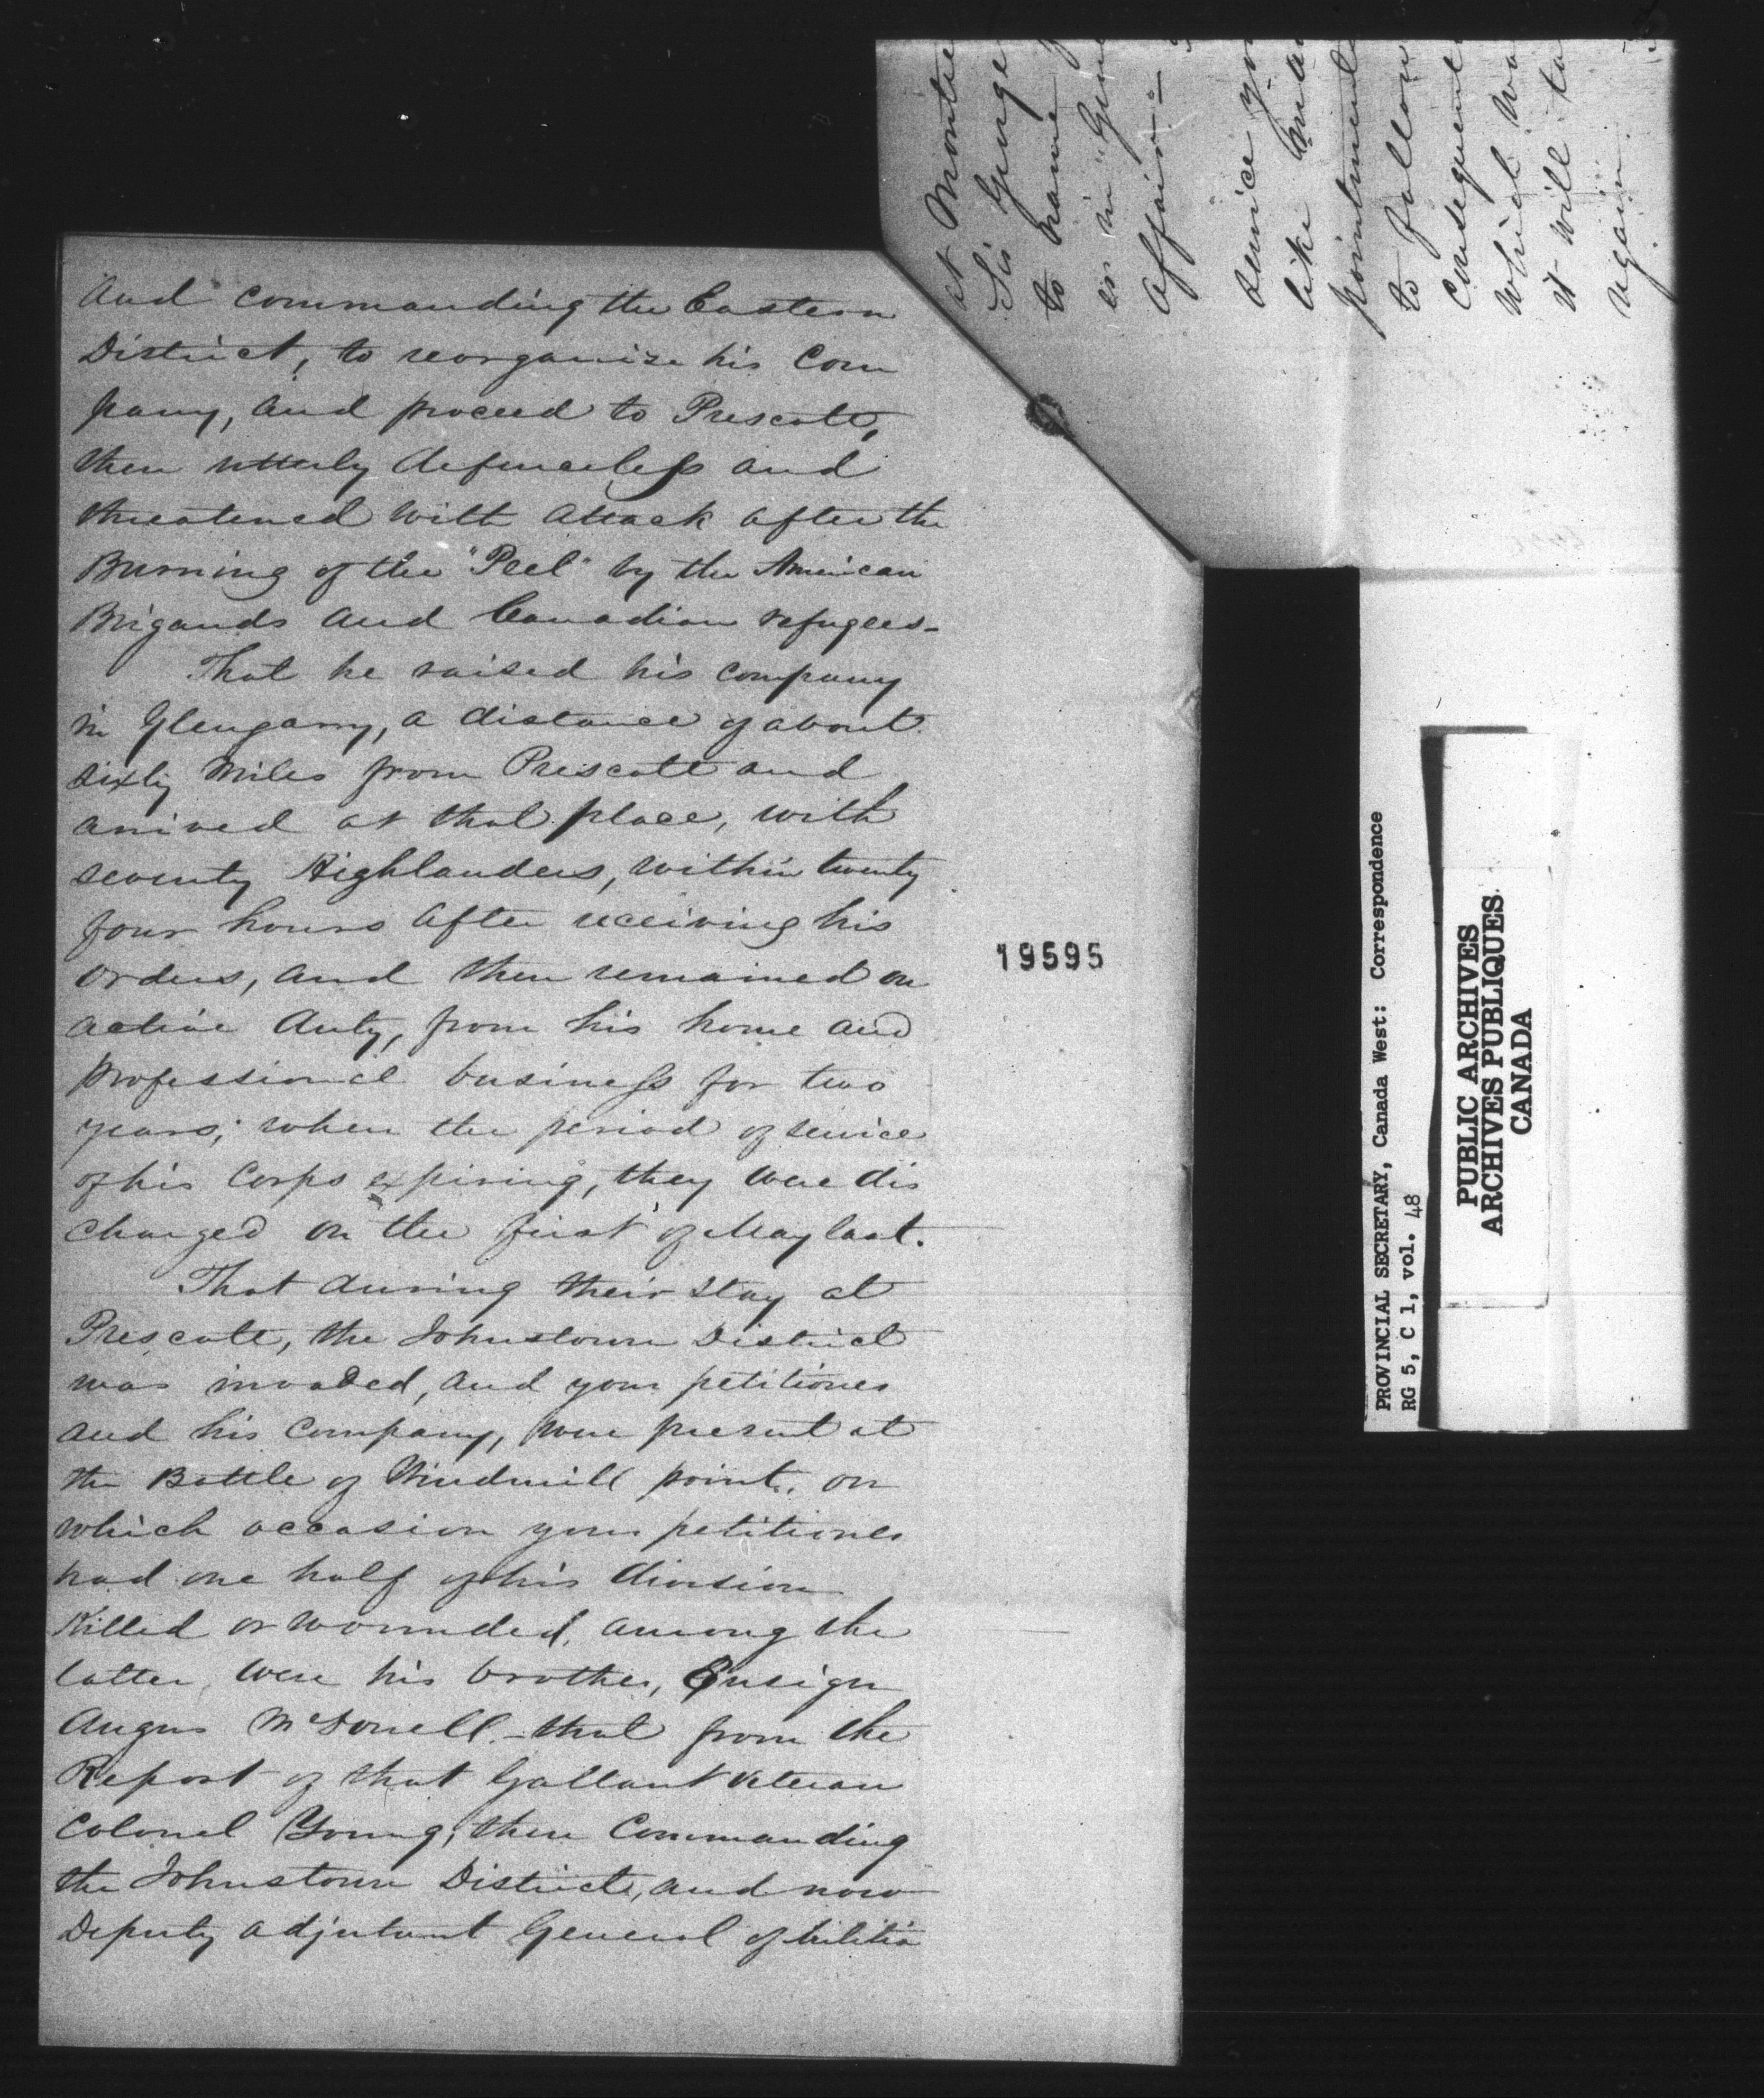 and commanding the Eastern
District, to reorganize his Com
pany, and proceed to Prescott,
then utterly defenceless and
threatened with attack after the
Burning of the "Peel" by the American
Brigands and Canadian refugees-
That he raised his company
in Glengarry, a distance of about
sixty miles from Prescott and
arrived at that place, with
seventy Highlanders, within twenty
four hours after receiving his
orders, and then remained on
active duty, from his home and
professional business for two
years; when the period of service
of his Corps expiring, they were dis
charged on the first of May last.
That during their stay at
Prescott, the Johnstown District
was invaded, and your petitioner
and his Company, were present at
the Battle of Windmill point, on
which occasion your petitioner
had one half of his division
Killed or wounded, among the
latter, were his brother, Ensign
Angus McDonell.- that from the
Report of that Gallant veteran
Colonel Young, then Commanding
the Johnstown District, and now
Deputy adjutant General of Militia
19595
at Montre
Sir George
to name
er in "Gene
affair
service you
like
pointment
to follow
Consequent
which wo
it will to
again.
PROVINCIAL SECRETARY, Canada West: Correspondence
RG 5, C 1, vol. 48
PUBLIC ARCHIVES
ARCHIVES PUBLIQUES
CANADA